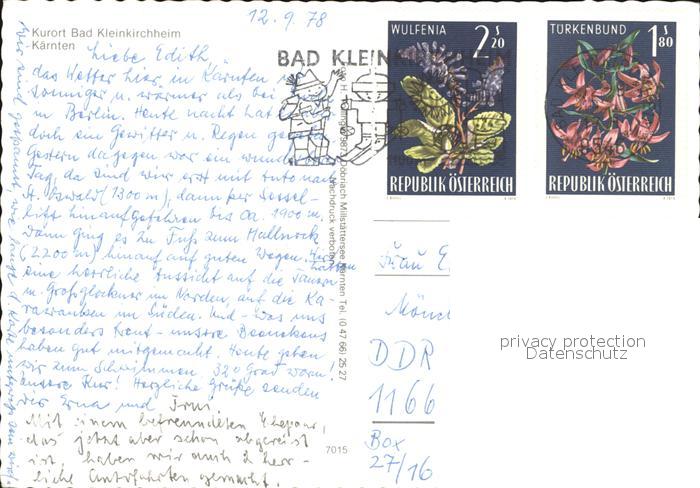 12. 9. 78
Kurort Bad Kleinkirchheim
Kärnten
Liebe Edith,
das Wetter hier in Kärnten
sonniger u. wärmer als bei
in Berlin. Heute nacht hat
doch ein Gewitter u. Regen
Gestern dagegen war ein
Tag, da sind wir erst mit Auto nach
St. Oswald (1300 m), dann per Sessel-
lift hinaufgefahren bis ca. 1900 m.
Dann ging es zu Fuß zum Mallnock
(2200 m) hinauf auf guten Wegen. Hier hatten
eine herrliche Aussicht auf die Tauern
u. Großglockner im Norden, auf die Ka-
rawanken im Süden. Und - was uns
besonders freut - unsere
haben gut mitgemacht. Heute gehen
wir zum Schwimmen 32° Grad warm!
unsere Kur! Herzliche Grüße senden
dir Erna und
Mit einem befreundeten Ehepaar,
das jetzt aber schon abgereist
ist, haben wir auch 2 herr-
liche Autofahrten gemacht.
wir sind gespannt, wie
BAD KLEINKIRCHHEIM
WULFENIA 2 S 20
REPUBLIK ÖSTERREICH
TÜRKENBUND 1 S 80
REPUBLIK ÖSTERREICH
9873 Döbriach Millstättersee Kärnten Tel. (0 47 66) 25 27
Nachdruck verboten
7015
Frau E
Mönc
DDR
1166
Box
27/16
privacy protection
Datenschutz